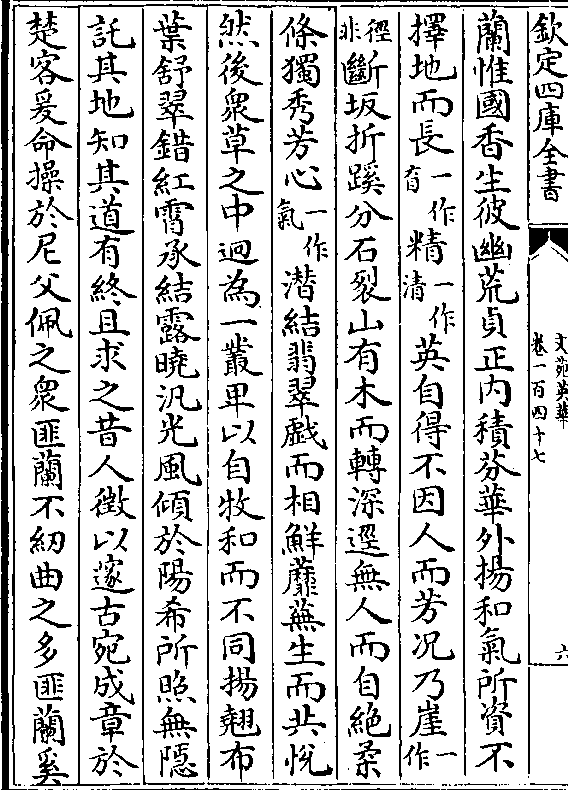 欽定四庫全書
文苑英華
卷一百四十七
六
蘭惟國香生彼幽荒貞正内積芬華外揚和氣所資不
擇地而長一作育精一作清英自得不因人而芳况乃崖一作
徑非斷坂折蹊分石裂山有木而轉深逕無人而自絶柔
條獨秀芳心一作氣潛結翡翠戲而相鮮蘼蕪生而共恱
然後衆草之中迥為一叢卑以自牧和而不同揚翹布
葉舒翠錯紅霄承結露曉汎光風傾於陽希所照無隱
託其地知其道有終且求之昔人徴以邃古宛成章於
楚客爰命操於尼父佩之衆匪蘭不紉曲之多匪蘭奚